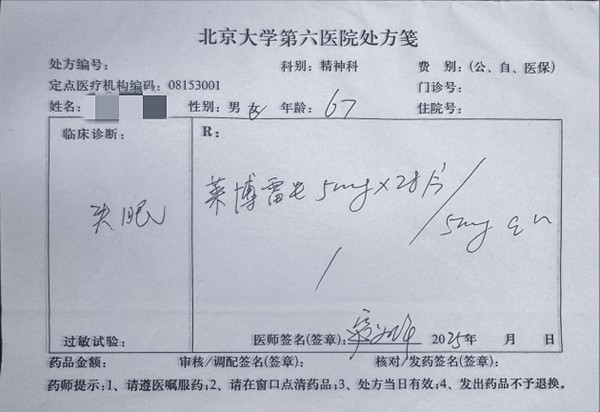 北京大学第六医院处方笺
处方编号： 科别：精神科 费 别：（公、自、医保）
定点医疗机构编码：08153001 门诊号：
姓名： 性别：男 女 年龄：67 住院号：
临床诊断： R：
莱博雷生 5mg×28片
失眠 5mg qn
过敏试验： 医师签名(签章)： 2025年 月 日
药品金额： 审核/调配签名(签章)： 核对/发药签名(签章)：
药师提示：1、请遵医嘱服药；2、请在窗口点清药品；3、处方当日有效；4、发出药品不予退换。